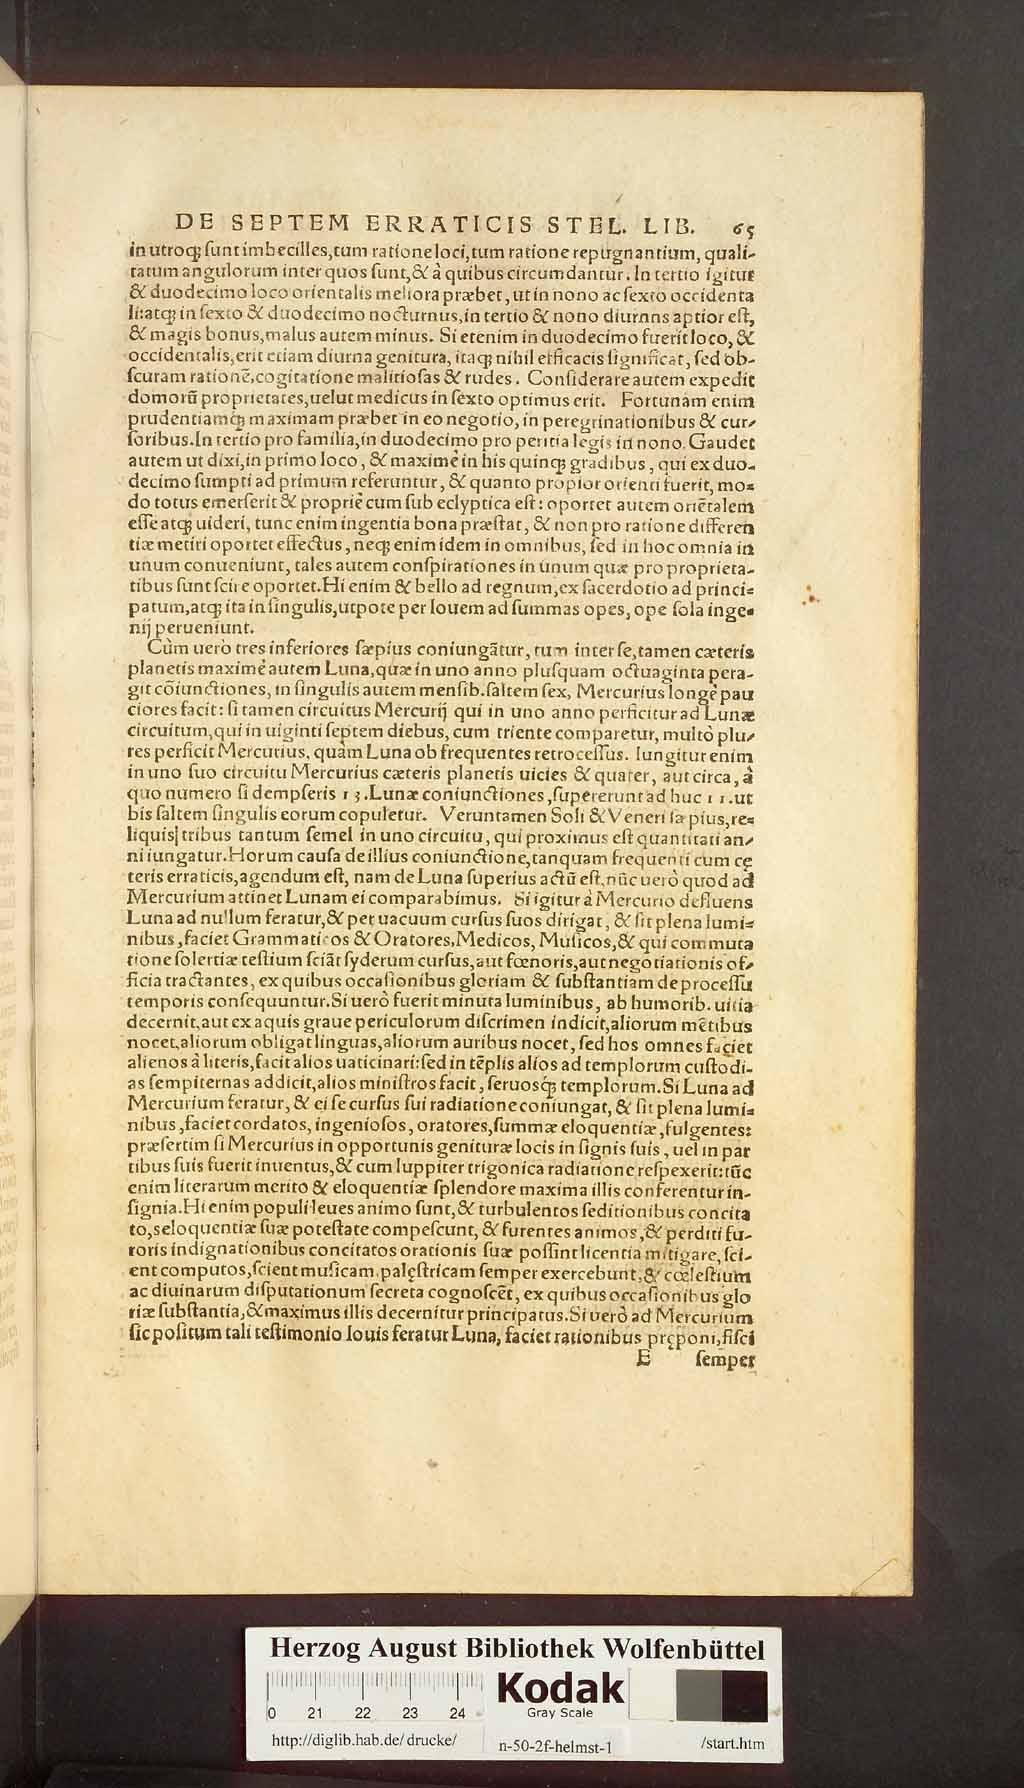 DE SEPTEM ERRATICIS STEL. LIB. 65
in utroq; sunt imbecilles, tum ratione loci, tum ratione repugnantium, quali-
tatum angulorum inter quos sunt, & à quibus circumdantur. In tertio igitur
& duodecimo loco orientalis meliora præbet, ut in nono ac sexto occidenta
li: atq; in sexto & duodecimo nocturnus, in tertio & nono diurnns aptior est,
& magis bonus, malus autem minus. Si etenim in duodecimo fuerit loco, &
occidentalis, erit etiam diurna genitura, itaq; nihil efficacis significat, sed ob-
scuram rationē, cogitatione malitiosas & rudes. Considerare autem expedit
domorū proprietates, uelut medicus in sexto optimus erit. Fortunam enim
prudentiamq; maximam præbet in eo negotio, in peregrinationibus & cur-
soribus. In tertio pro familia, in duodecimo pro peritia legis in nono. Gaudet
autem ut dixi, in primo loco, & maximè in his quinq; gradibus, qui ex duo-
decimo sumpti ad primum referuntur, & quanto propior orienti fuerit, mo-
do totus emerserit & propriè cum sub eclyptica est: oportet autem oriētalem
esse atq; uideri, tunc enim ingentia bona præstat, & non pro ratione differen
tiæ metiri oportet effectus, neq; enim idem in omnibus, sed in hoc omnia in
unum conueniunt, tales autem conspirationes in unum quæ pro proprieta-
tibus sunt scire oportet. Hi enim & bello ad regnum, ex sacerdotio ad princi-
patum, atq; ita in singulis, utpote per Iouem ad summas opes, ope sola inge-
nij perueniunt.
Cùm uerò tres inferiores sæpius coniungātur, tum inter se, tamen cæteris
planetis maximè autem Luna, quæ in uno anno plusquam octuaginta pera-
git cōiunctiones, in singulis autem mensib. saltem sex, Mercurius longè pau
ciores facit: si tamen circuitus Mercurij qui in uno anno perficitur ad Lunæ
circuitum, qui in uiginti septem diebus, cum triente comparetur, multò plu-
res perficit Mercurius, quàm Luna ob frequentes retrocessus. Iungitur enim
in uno suo circuitu Mercurius cæteris planetis uicies & quater, aut circa, à
quo numero si dempseris 13. Lunæ coniunctiones, supererunt ad huc 11. ut
bis saltem singulis eorum copuletur. Veruntamen Soli & Veneri sæpius, re-
liquis tribus tantum semel in uno circuitu, qui proximus est quantitati an-
ni iungatur. Horum causa de illius coniunctione, tanquam frequenti cum cę
teris erraticis, agendum est, nam de Luna superius actū est, nūc uerò quod ad
Mercurium attinet Lunam ei comparabimus. Si igitur à Mercurio defluens
Luna ad nullum feratur, & per uacuum cursus suos dirigat, & sit plena lumi-
nibus, faciet Grammaticos & Oratores, Medicos, Musicos, & qui commuta
tione solertiæ testium sciāt syderum cursus, aut fœnoris, aut negotiationis of-
ficia tractantes, ex quibus occasionibus gloriam & substantiam de processu
temporis consequuntur. Si uerò fuerit minuta luminibus, ab humorib. uitia
decernit, aut ex aquis graue periculorum discrimen indicit, aliorum mētibus
nocet, aliorum obligat linguas, aliorum auribus nocet, sed hos omnes faciet
alienos à literis, facit alios uaticinari: sed in tēplis alios ad templorum custodi-
as sempiternas addicit, alios ministros facit, seruosq; templorum. Si Luna ad
Mercurium feratur, & ei se cursus sui radiatione coniungat, & sit plena lumi-
nibus, faciet cordatos, ingeniosos, oratores, summæ eloquentiæ, fulgentes:
præsertim si Mercurius in opportunis genituræ locis in signis suis, uel in par
tibus suis fuerit inuentus, & cum Iuppiter trigonica radiatione respexerit: tūc
enim literarum merito & eloquentiæ splendore maxima illis conferentur in-
signia. Hi enim populi leues animo sunt, & turbulentos seditionibus concita
to, seloquentiæ suæ potestate compescunt, & furentes animos, & perditi fu-
roris indignationibus concitatos orationis suæ possint licentia mitigare, sci-
ent computos, scient musicam, palęstricam semper exercebunt, & cœlestium
ac diuinarum disputationum secreta cognoscēt, ex quibus occasionibus glo
riæ substantia, & maximus illis decernitur principatus. Si uerò ad Mercurium
sic positum tali testimonio Iouis feratur Luna, faciet rationibus pręponi, fisci
E semper
Herzog August Bibliothek Wolfenbüttel
0 21 22 23 24
Kodak
Gray Scale
http://diglib.hab.de/drucke/ n-50-2f-helmst-1 /start.htm